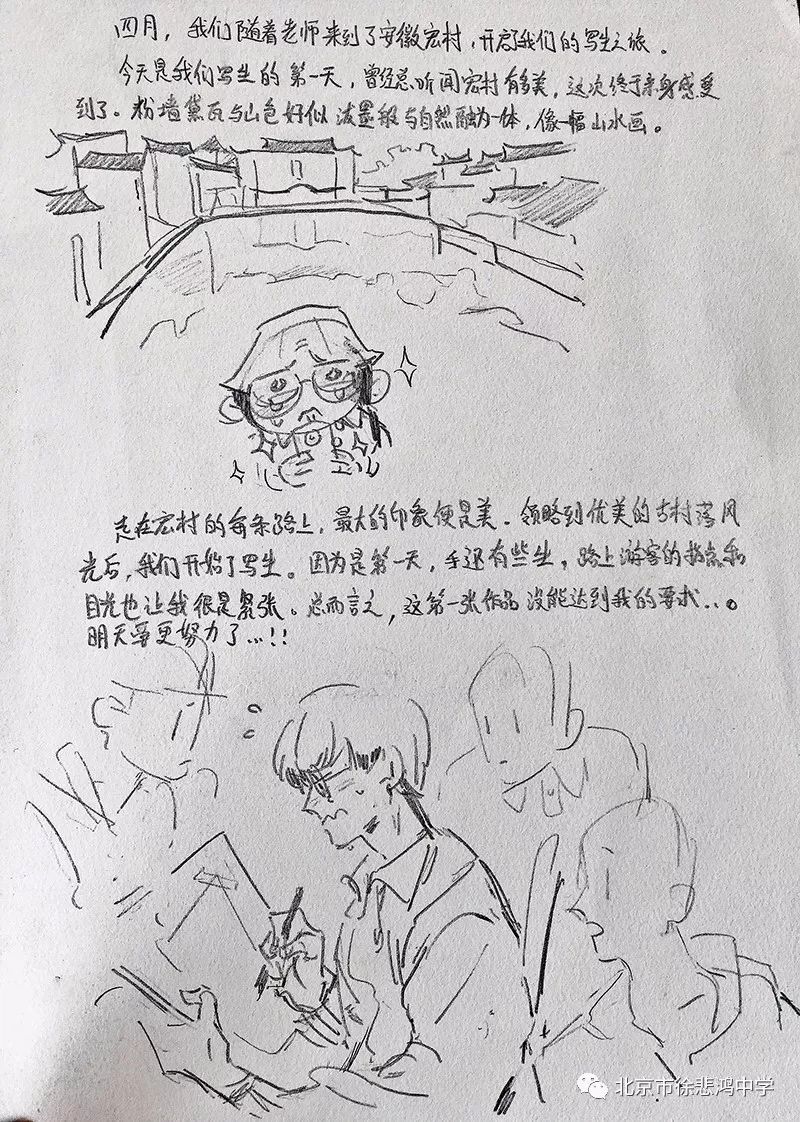 四月，我们随着老师来到了安徽宏村，开启我们的写生之旅。
今天是我们写生的第一天，曾经总听闻宏村有多美，这次终于亲身感受
到了。粉墙黛瓦与山色好似泼墨般与自然融为一体，像一幅山水画。
走在宏村的每条路上，最大的印象便是美。领略到优美的古村落风
光后，我们开始了写生。因为是第一天，手还有些生，路上游客的指点和
目光也让我很是紧张。总而言之，这第一张作品没能达到我的要求...。
明天要更努力了...!!
北京市徐悲鸿中学